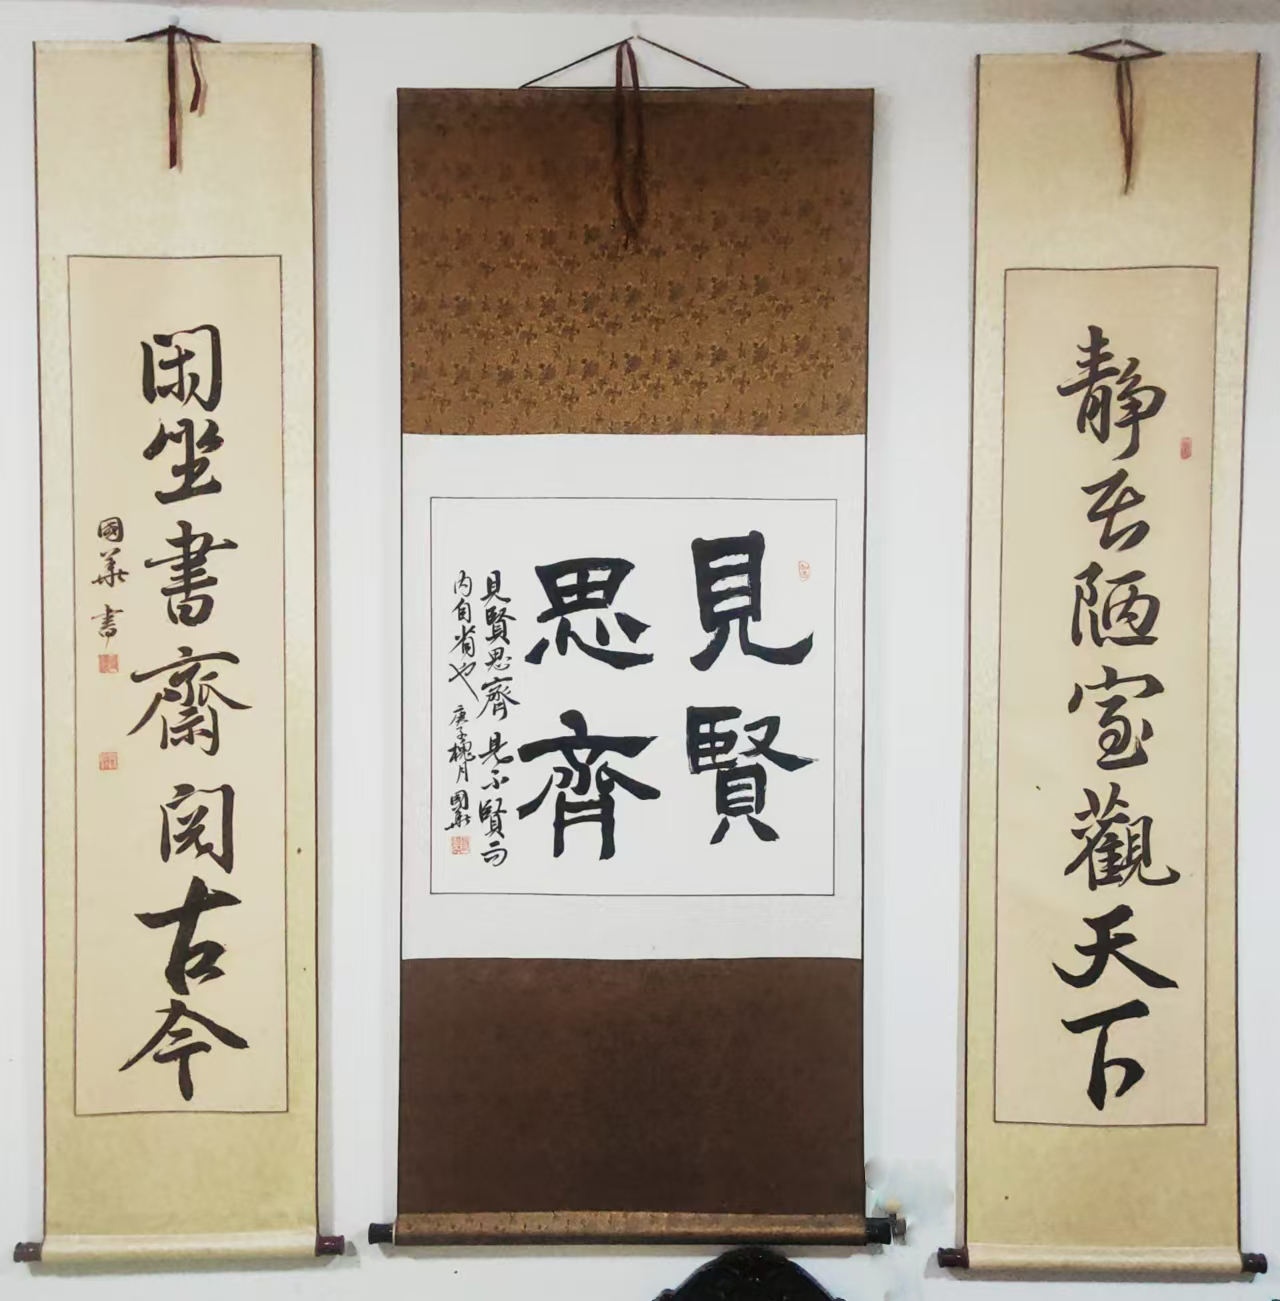 靜居陋室觀天下
見賢
思齊
見賢思齊見不賢而
內自省也 庚子槐月 國華
閑坐書齋閱古今
國華書